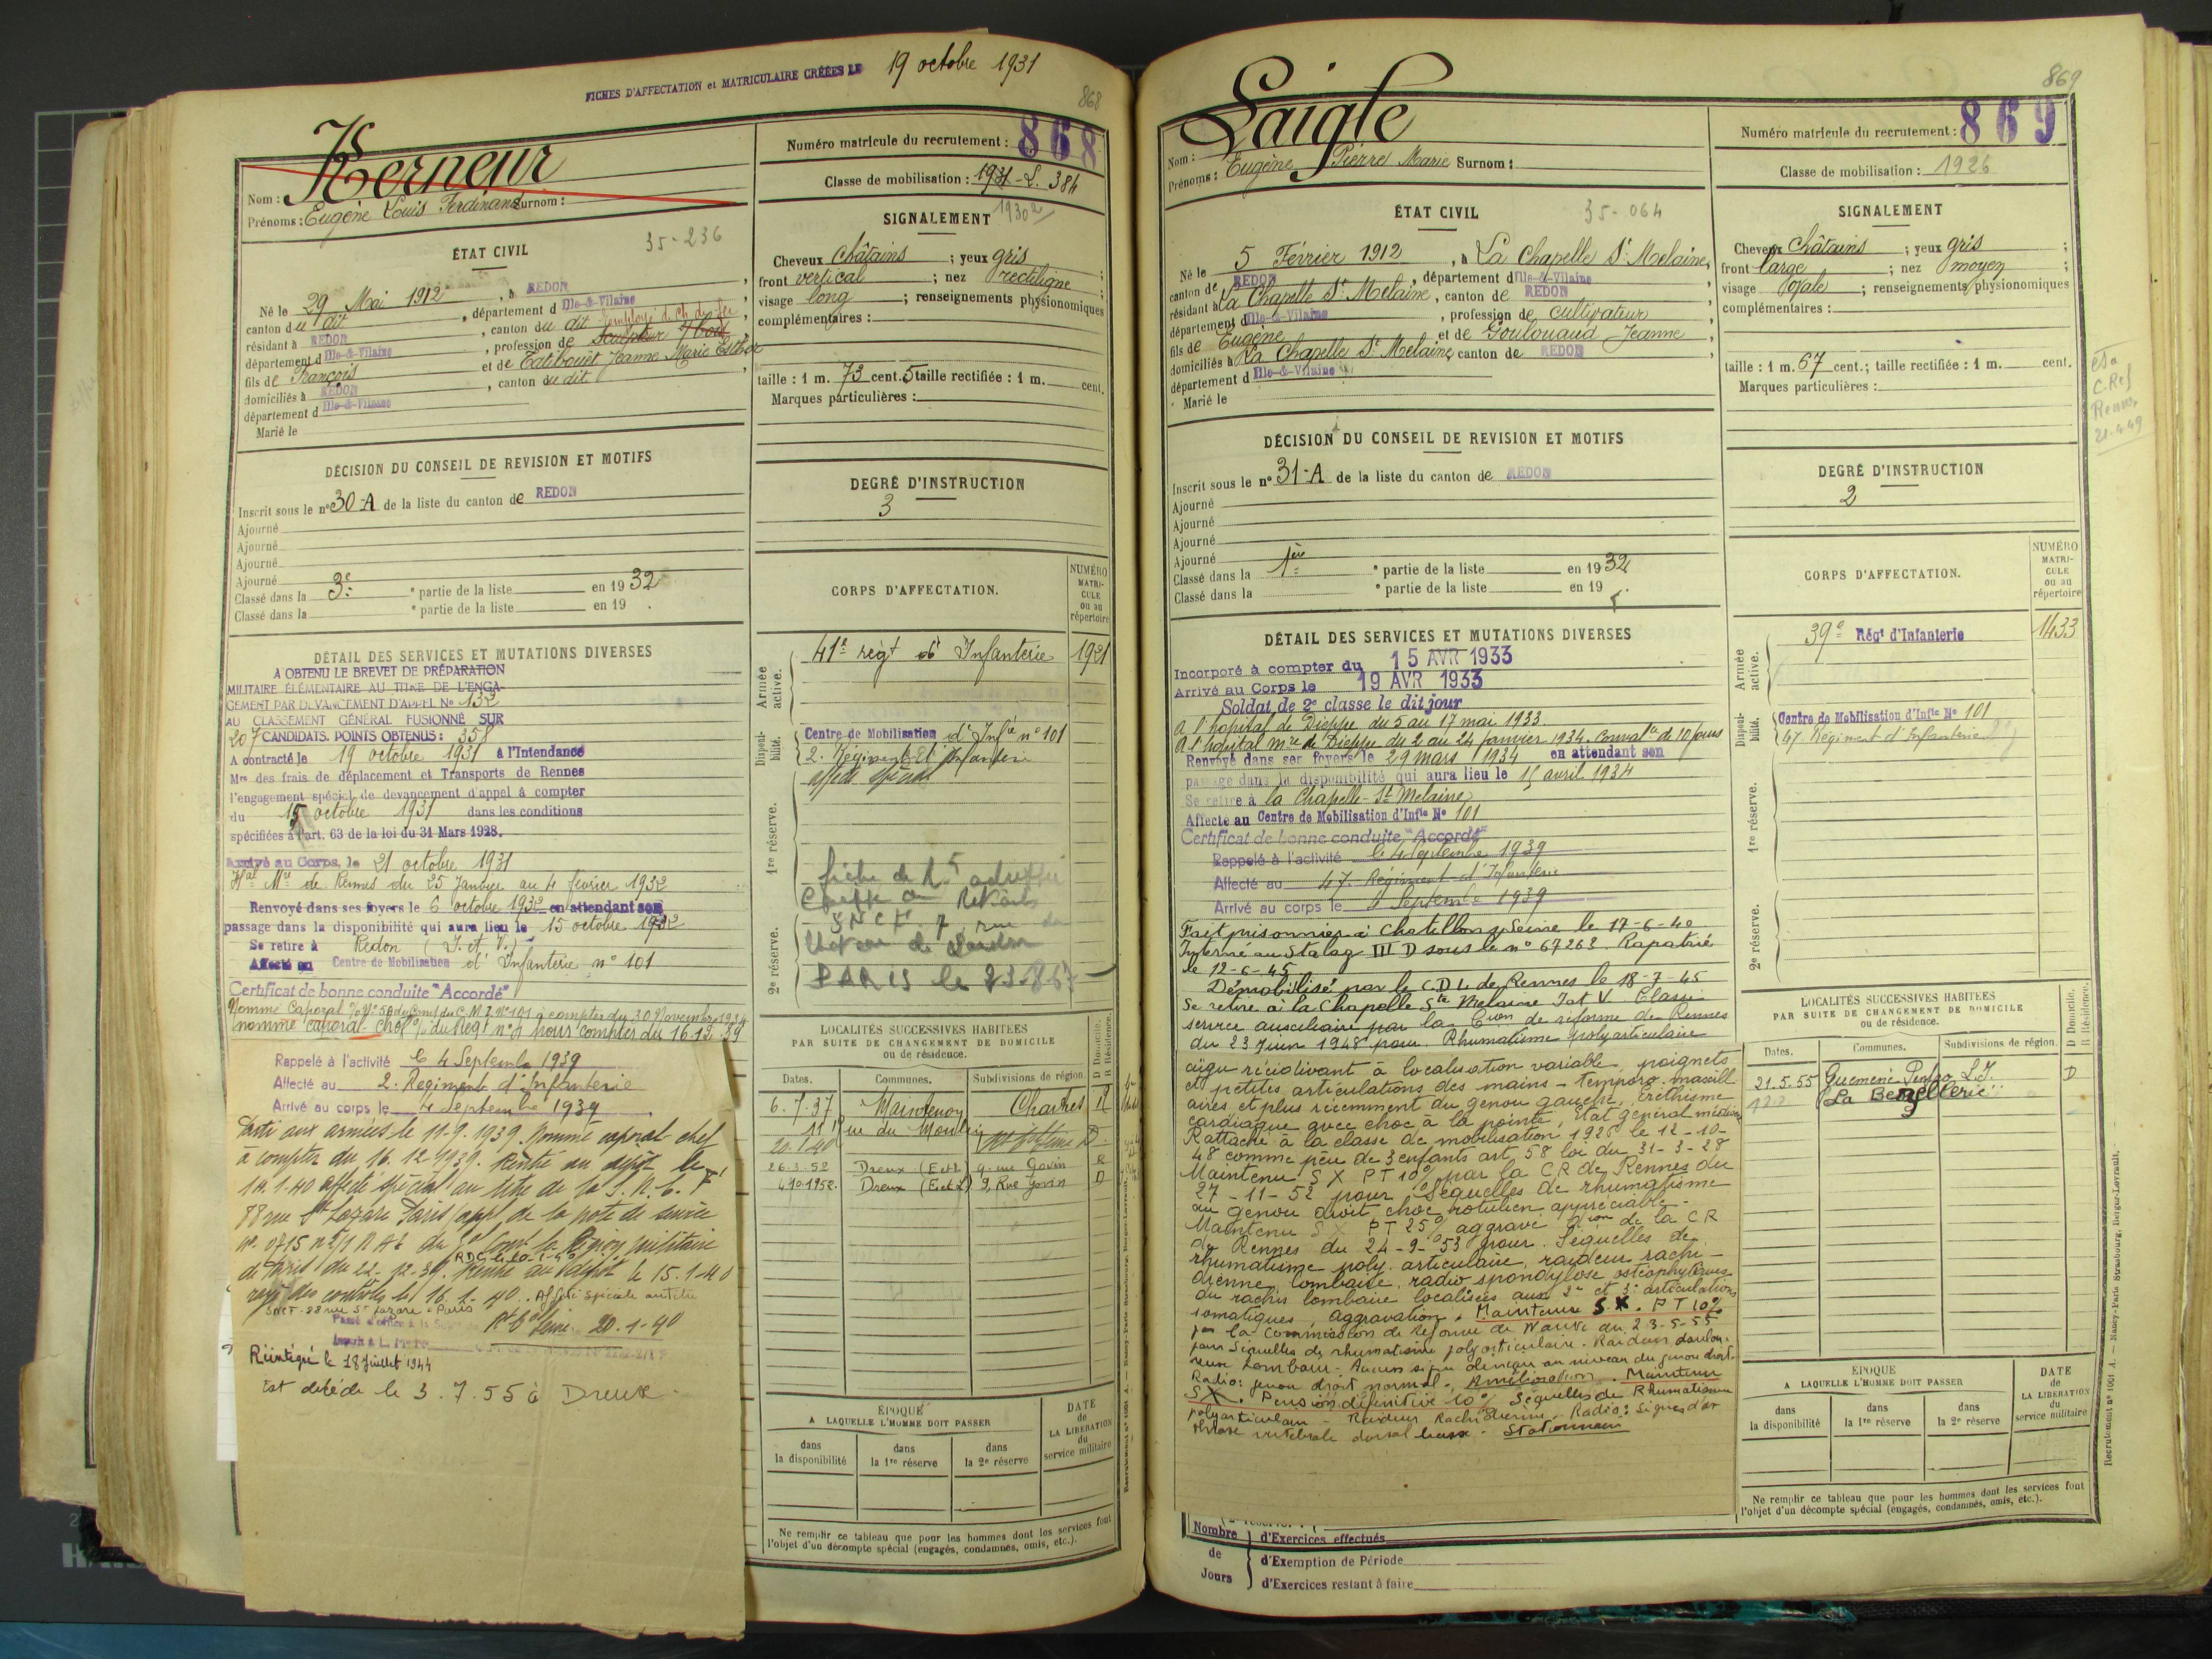 FICHES D'AFFECTATION et MATRICULAIRE CRÉÉES LE 19 octobre 1931
868
Kerneur
Nom :
Prénoms : Eugène Louis Ferdinand Surnom :
ÉTAT CIVIL
35-236
Né le 29 Mai 1912, à REDON
canton du dit, département d Ille-&-Vilaine
résidant à REDON, canton du dit employé de ch. de fer
département d Ille-&-Vilaine, profession de Sculpteur s/bois
fils de François et de Tatibouet Jeanne Marie Esther
domiciliés à REDON, canton du dit
département d Ille-&-Vilaine
Marié le
DÉCISION DU CONSEIL DE REVISION ET MOTIFS
Inscrit sous le n° 30-A de la liste du canton de REDON
Ajourné
Ajourné
Ajourné
Ajourné
Classé dans la 3e ° partie de la liste en 1932
Classé dans la ° partie de la liste en 19 .
DÉTAIL DES SERVICES ET MUTATIONS DIVERSES
A OBTENU LE BREVET DE PRÉPARATION
MILITAIRE ÉLÉMENTAIRE AU TITRE DE L'ENGA-
GEMENT PAR DEVANCEMENT D'APPEL N° 132
AU CLASSEMENT GÉNÉRAL FUSIONNÉ SUR
207 CANDIDATS. POINTS OBTENUS : 358
A contracté le 19 octobre 1931 à l'Intendance
Mre des frais de déplacement et Transports de Rennes
l'engagement spécial de devancement d'appel à compter
du 15 octobre 1931 dans les conditions
spécifiées à l'art. 63 de la loi du 31 Mars 1928.
Arrivé au Corps, le 21 octobre 1931
Hal Mre de Rennes du 25 Janvier au 4 février 1932
Renvoyé dans ses foyers le 6 octobre 1932 en attendant son
passage dans la disponibilité qui aura lieu le 15 octobre 1932
Se retire à Redon (I. et V.)
Affecté au Centre de Mobilisation d'Infanterie n° 101
Certificat de bonne conduite "Accordé"
Nommé Caporal du C.M.I. N°101 à compter du 30 Novembre 1934
nommé caporal-chef pour compter du 16.12.39
Rappelé à l'activité le 4 Septembre 1939
Affecté au 2. Régiment d'Infanterie
Arrivé au corps le 4 Septembre 1939
Parti aux armées le 11-9-1939. Nommé caporal chef
à compter du 16.12.1939. Rentré au dépôt le
14.1.40 affecté spécial au titre de la S.N.C.F
88 rue St Lazare Paris appl de la note de service
de Paris du 22-12-39. Rentré au dépôt le 15.1.40
rayé des contrôles le 16.1.40. Affecté spéciale au titre
SNCF-88 rue St Lazare-Paris
20-1-40
Réintégré le 18 Juillet 1944
Est décédé le 3.7.55 à Dreux.
Numéro matricule du recrutement : 868
Classe de mobilisation : 1931-L. 384
1930 2
SIGNALEMENT
Cheveux châtains ; yeux gris ;
front vertical ; nez rectiligne ;
visage long ; renseignements physionomiques
complémentaires :
taille : 1 m. 73 cent. 5 taille rectifiée : 1 m. cent.
Marques particulières :
DEGRÉ D'INSTRUCTION
3
CORPS D'AFFECTATION.
NUMÉRO MATRI-CULE ou au répertoire
Armée active.
41e régt d'Infanterie 1921
Disponi-bilité.
Centre de Mobilisation d'Infie n° 101
2. Régiment d'Infanterie
affecté spécial
1re réserve.
2e réserve.
PARIS le
LOCALITÉS SUCCESSIVES HABITÉES
PAR SUITE DE CHANGEMENT DE DOMICILE
ou de résidence.
D Domicile. R Résidence.
Dates. Communes. Subdivisions de région.
6.7.37 Maintenon Chartres R
11 rue du Moulin
20.1.40
26.3.52 Dreux (E et L) 9 rue Govin R
4.10.1952. Dreux (E et L) 9, Rue Govin D
ÉPOQUE
A LAQUELLE L'HOMME DOIT PASSER
DATE de LA LIBÉRATION du service militaire
dans la disponibilité
dans la 1re réserve
dans la 2e réserve
Ne remplir ce tableau que pour les hommes dont les services font
l'objet d'un décompte spécial (engagés, condamnés, omis, etc.).
869
Laigle
Nom :
Prénoms : Eugène Pierre Marie Surnom :
ÉTAT CIVIL
35-064
Né le 5 Février 1912, à La Chapelle St Melaine,
canton de REDON, département d Ille-&-Vilaine
résidant à La Chapelle St Melaine, canton de REDON
département d Ille-&-Vilaine, profession de cultivateur
fils de Eugène et de Goulouaud Jeanne
domiciliés à La Chapelle St Melaine canton de REDON
département d Ille-&-Vilaine
Marié le
DÉCISION DU CONSEIL DE REVISION ET MOTIFS
Inscrit sous le n° 31-A de la liste du canton de REDON
Ajourné
Ajourné
Ajourné
Ajourné
Classé dans la 1ère ° partie de la liste en 1932
Classé dans la ° partie de la liste en 19 .
DÉTAIL DES SERVICES ET MUTATIONS DIVERSES
Incorporé à compter du 15 AVR 1933
Arrivé au Corps le 19 AVR 1933
Soldat de 2e classe le dit jour
A l'hôpital de Dieppe du 5 au 17 mai 1933.
A l'hôpital mre de Dieppe du 2 au 24 janvier 1934. Convalce de 10 jours
Renvoyé dans ses foyers le 29 mars 1934 en attendant son
passage dans la disponibilité qui aura lieu le 15 avril 1934
Se retire à la Chapelle-St Melaine
Affecté au Centre de Mobilisation d'Infie N° 101
Certificat de bonne conduite "Accordé"
Rappelé à l'activité le 4 Septembre 1939
Affecté au 47. Régiment d'Infanterie
Arrivé au corps le 4 Septembre 1939
Fait prisonnier à Chatillon s/Seine le 17-6-40
Interné au Stalag III D sous le n° 67268. Rapatrié
le 12-6-45
Démobilisé par le C.D.L. de Rennes le 18-7-45
Se retire à la Chapelle Ste Melaine I et V. Classé
service auxciliaire par la Cion de réforme de Rennes
du 23 Juin 1948 pour Rhumatisme polyarticulaire
aïgu récidivant à localisation variable, poignets
et petites articulations des mains - temporo. maxill
aires et plus récemment du genou gauche, éréthisme
cardiaque avec choc à la pointe, Etat général médiocre
Rattaché à la classe de mobilisation 1926 le 12-10-
48 comme père de 3 enfants art. 58 loi du 31-3-28
Maintenu S X PT 10% par la C.R de Rennes du
27-11-52 pour Séquelles de rhumatisme
au genou droit choc rotulien appréciable.
Maintenu S X PT 25% aggravé Dion de la CR
de Rennes du 24-9-53 pour. Séquelles de
rhumatisme poly. articulaire, raideur rachi-
dienne, lombaire, radio spondylose ostéophytiques
du rachis lombaire localisées aux 2e et 3e articulations
somatiques, Aggravation. Maintenu S.X. PT 10%
par la Commission de Réforme de Nantes du 23-5-55
pour Séquelles de rhumatisme polyarticulaire. Raideur doulou-
reuse Lombaire. Aucun signe clinique au niveau du genou droit.
Radio : genou droit normal. Amélioration. Maintenu
S X. Pension définitive 10% Séquelles de Rhumatisme
polyarticulaire - Raideur Rachidienne. Radio : Signes d'ar
throse vertébrale dorsal basse. Stationnaire
Nombre de Jours
d'Exercices effectués
d'Exemption de Période
d'Exercices restant à faire
Numéro matricule du recrutement : 869
Classe de mobilisation : 1926
SIGNALEMENT
Cheveux châtains ; yeux gris ;
front large ; nez moyen ;
visage ovale ; renseignements physionomiques
complémentaires :
taille : 1 m. 67 cent. ; taille rectifiée : 1 m. cent.
Marques particulières :
C. Ref
Rennes
21.4.49
DEGRÉ D'INSTRUCTION
2
CORPS D'AFFECTATION.
NUMÉRO MATRI-CULE ou au répertoire
Armée active.
39e Régt d'Infanterie 1433
Disponi-bilité.
Centre de Mobilisation d'Infie N° 101
47 Régiment d'Infanterie
1re réserve.
2e réserve.
LOCALITÉS SUCCESSIVES HABITÉES
PAR SUITE DE CHANGEMENT DE DOMICILE
ou de résidence.
D Domicile. R Résidence.
Dates. Communes. Subdivisions de région.
21.5.55 Guémené Penfao L.I. D
ÉPOQUE
A LAQUELLE L'HOMME DOIT PASSER
DATE de LA LIBÉRATION du service militaire
dans la disponibilité
dans la 1re réserve
dans la 2e réserve
Ne remplir ce tableau que pour les hommes dont les services font
l'objet d'un décompte spécial (engagés, condamnés, omis, etc.).
Recrutement n° 1001 A. — Nancy-Paris Strasbourg, Berger-Levrault.